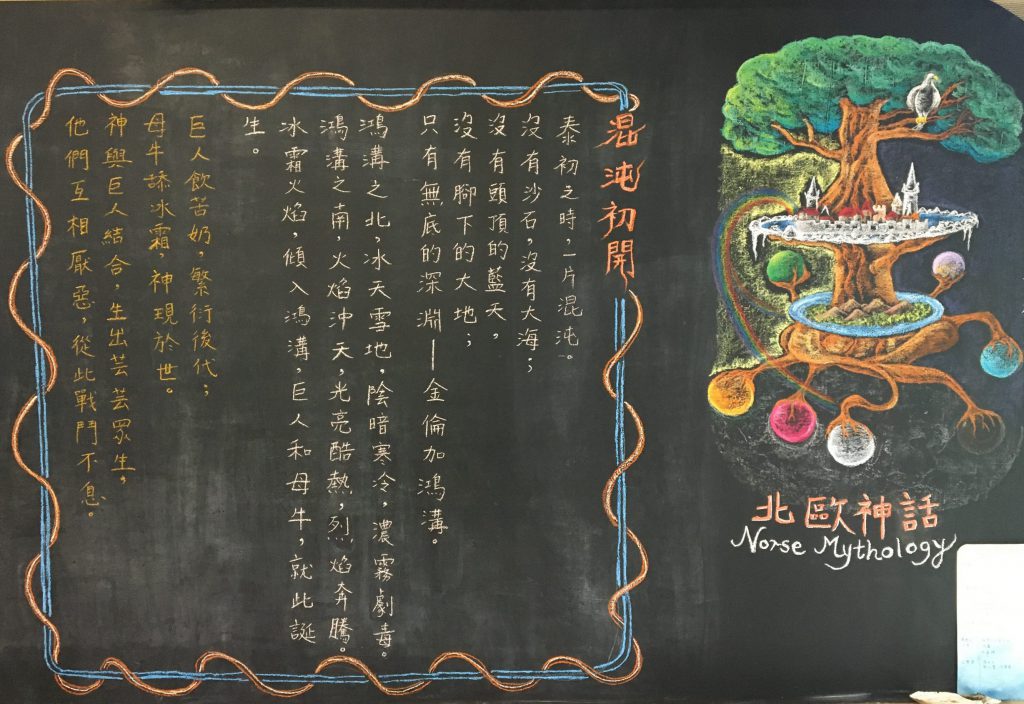 混沌初開
泰初之時，一片混沌。
沒有沙石，沒有大海；
沒有頭頂的藍天，
沒有腳下的大地；
只有無底的深淵—金倫加鴻溝。
鴻溝之北，冰天雪地，陰暗寒冷，濃霧劇毒。
鴻溝之南，火焰沖天，光亮酷熱，烈焰奔騰。
冰霜火焰，傾入鴻溝，巨人和母牛，就此誕
生。
巨人飲苦奶，繁衍後代；
母牛舔冰霜，神現於世。
神與巨人結合，生出芸芸眾生，
他們互相厭惡，從此戰鬥不息。
北歐神話
Norse Mythology